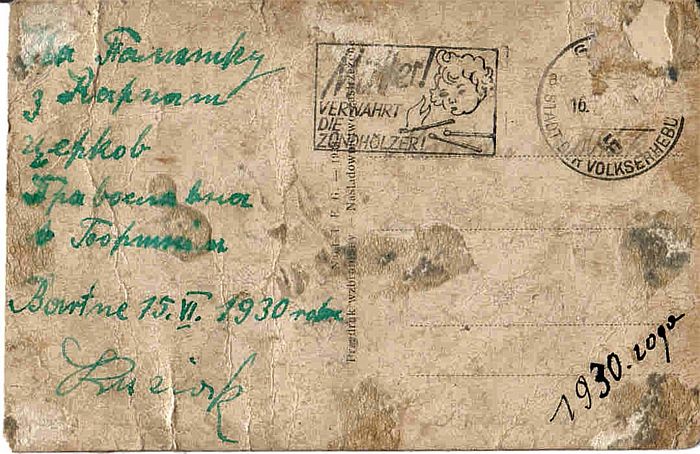 На Памятку
з Карпат
церков
Православна
в Бортним
Bartne 15.VI. 1930 roku
Mütter!
VERWAHRT
DIE
ZÜNDHÖLZER!
16.
STADT DER VOLKSERHEBU
Przedruk wzbroniony Naśladownictwo zastrzeżone
1930. года